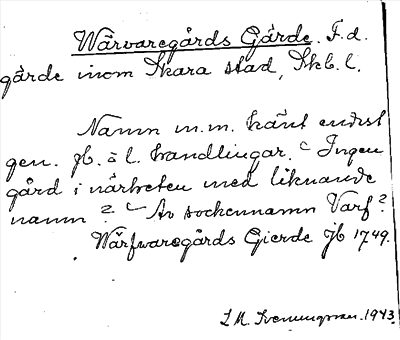 Wärvaregårds Gärde. F.d.
gärde inom Skara stad, Skb. l.
Namn m.m. känt endast
gen. jb. å l. handlingar. Ingen
gård i närheten med liknande
namn? Av sockennamn Varf?
Wärfwaregårds Gierde jb 1749.
L.M. Svenungsson. 1943.